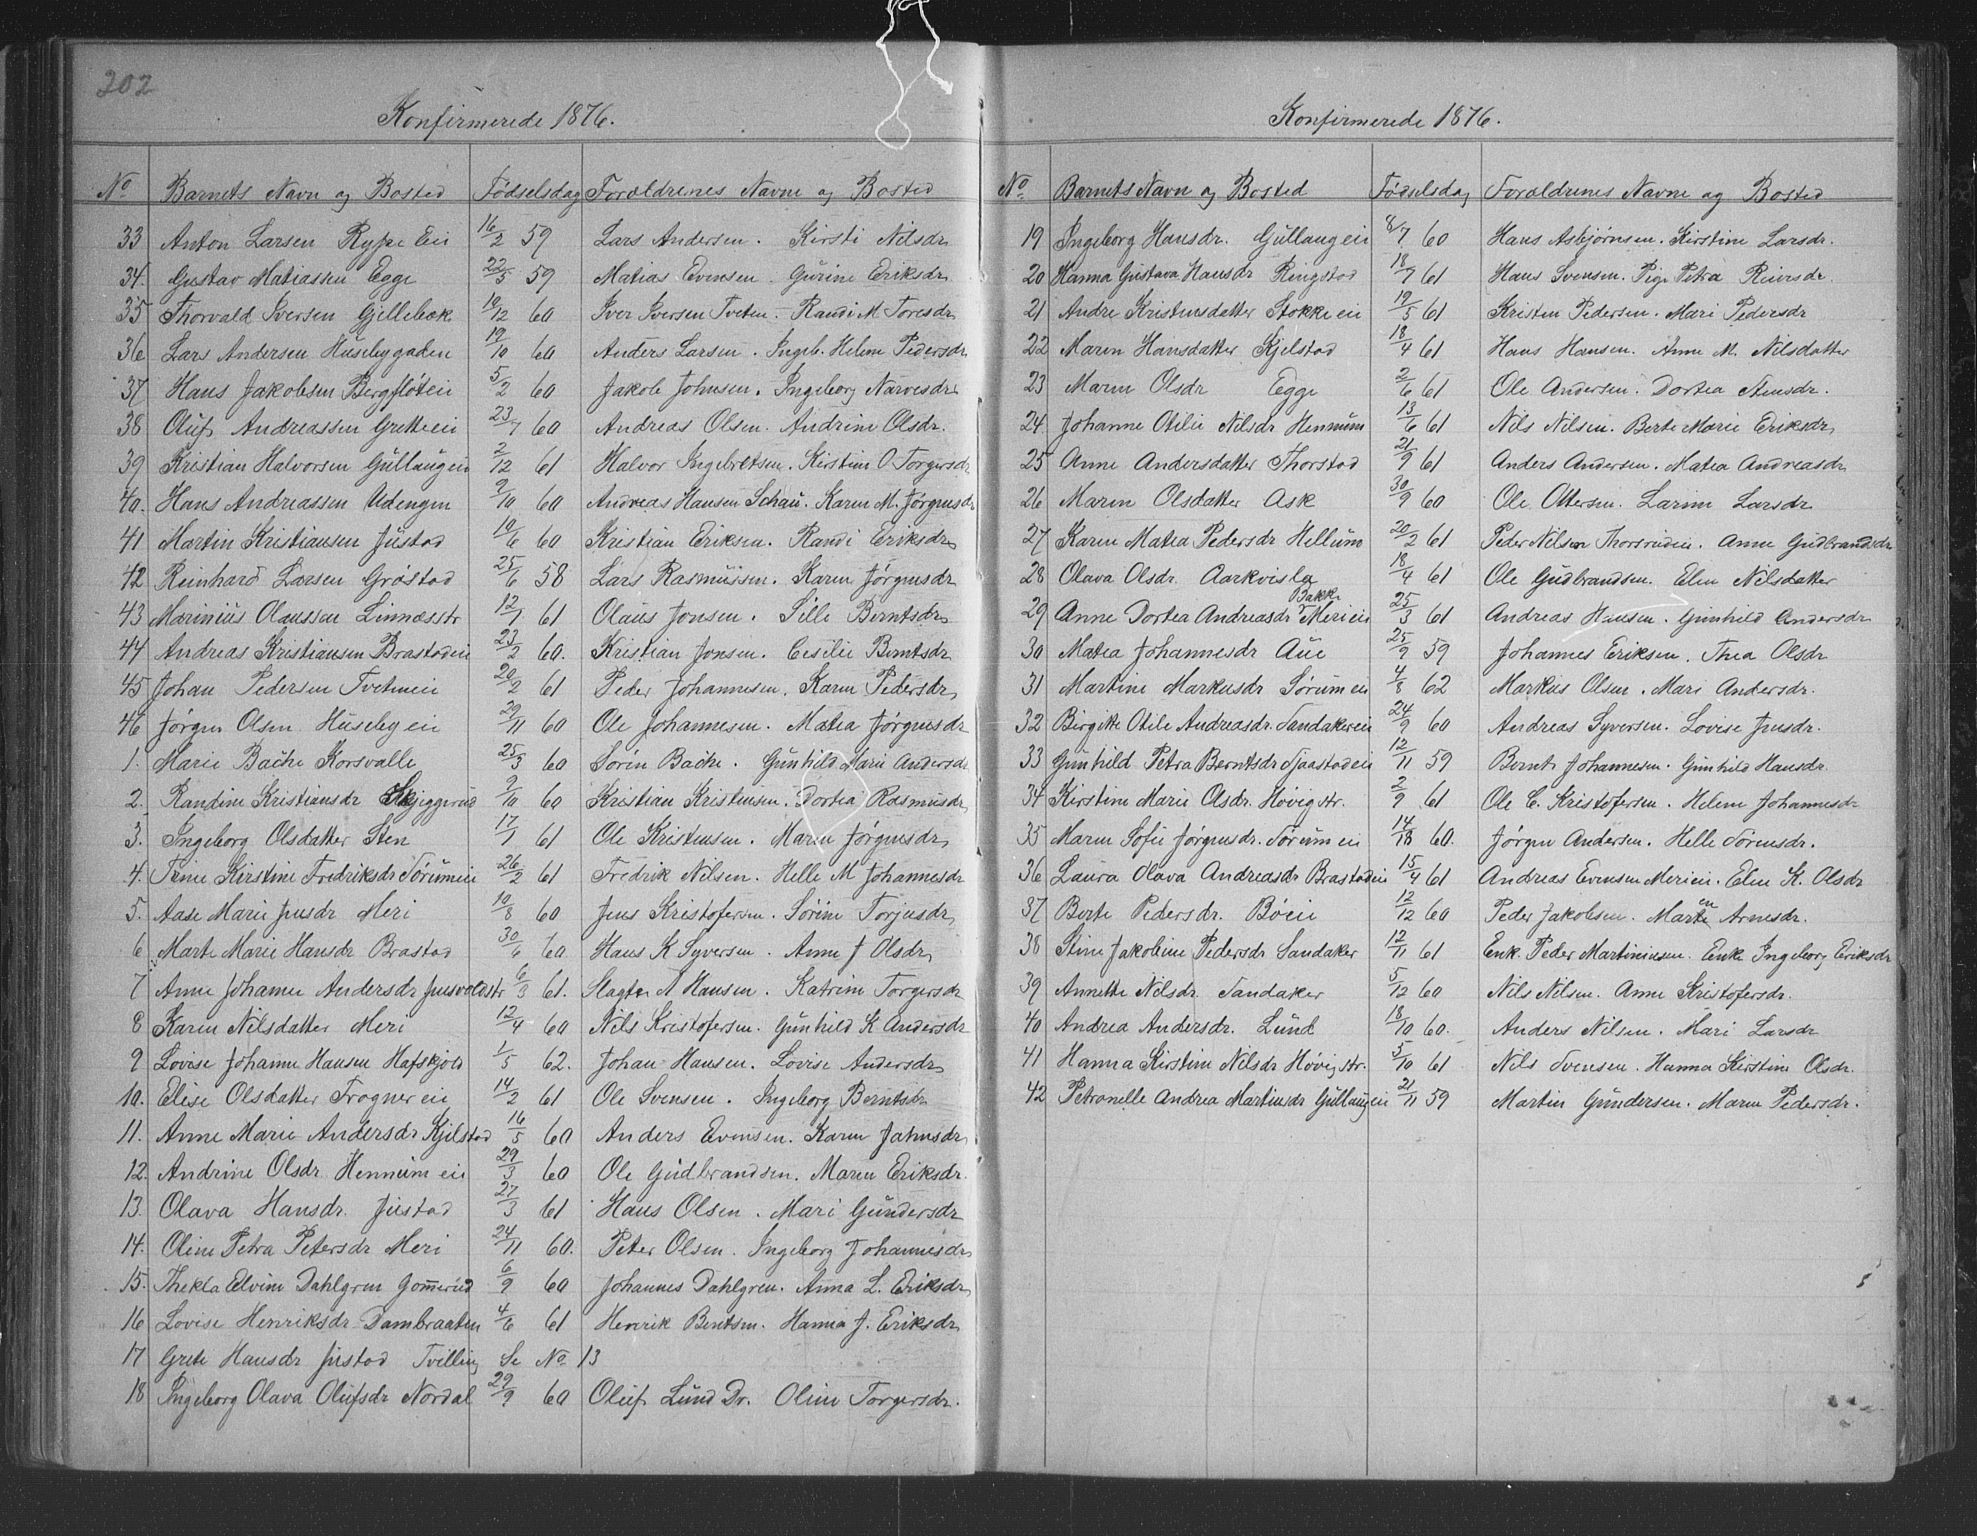 202
Konfirmerede 1876.
No Barnets Navn og Bosted Fødselsdag Forældrenes Navne og Bosted
33 Anton Larsen Rypeeie 16/2 59 Lars Andersen. Kirsti Nilsdr
34. Gustav Matiassen Egge 22/5 59 Matias Evensen. Gurine Eriksdr
35 Thorvald Iversen Gjellebæk 19/12 60 Iver Iversen Tveten. Randi M. Toresdr
36 Lars Andersen Husebygaden 19/10 60 Anders Larsen. Ingeb. Helene Pedersdr
37 Hans Jakobsen Bergfløteie 5/2 60 Jakob Johnsen. Ingeborg Narvesdr
38 Oluf Andreassen Gretteeie 23/7 60 Andreas Olsen. Andrine Olsdr.
39 Kristian Halvorsen Gullaugeie 2/12 61 Halvor Ingebretsen. Kirstine O Torgersdr
40. Hans Andreassen Udengen 9/10 60 Andreas Hansen Schau. Karen M. Jørgensdr
41 Martin Kristiansen Justad 19/6 60 Kristian Eriksen. Randi Eriksdr
42 Reinhard Larsen Grøstad 25/6 58 Lars Rasmussen. Karen Jørgensdr
43 Marinius Olaussen Linnæsstr 12/7 61 Olaus Jonsen. Sille Berntsdr
44 Andreas Kristiansen Brastadeie 23/2 60. Kristian Jonsen. Cecilie Berntsdr
45 Johan Pedersen Tveteneie 20/2 61 Peder Johannesen. Karen Pedersdr
46 Jørgen Olsen Husebyeie 29/11 60 Ole Johannesen. Matea Jørgensdr
1. Marie Bache Korsvalle 25/3 60 Sørin Bache. Gunhild Marie Andersdr
2. Randine Kristiansdr Skjeggerud 9/10 60 Kristian Kristensen. Dortea Rasmusdr
3. Ingeborg Olsdatter Sten 17/1 61 Ole Kristensen. Maren Jørgensdr
4. Trine Kirstine Fredriksdr Sørumeie 26/2 61 Fredrik Nilsen. Helle M Johannesdr
5. Aase Marie Jensdr Meri 10/8 60 Jens Kristofersen. Sørine Torjusdr
6 Marte Marie Hansdr Brastad 30/6 60 Hans K Syversen. Anne J Olsdr
7 Anne Johanne Andersdr Jensvoldstr 6/3 61. Slagter A Hansen. Katrine Torgersdr
8 Karen Nilsdatter Meri 12/4 60 Nils Kristofersen. Gunhild K Andersdr
9 Lovise Johanne Hansen Hafskjold 1/5 62. Johan Hansen. Lovise Andersdr
10. Elise Olsdatter Frognereie 14/2 61 Ole Svensen. Ingeborg Berntsdr
11. Anne Marie Andersdr Kjelstad 16/5 60 Anders Evensen. Karen Jahnsdr
12. Andrine Olsdr Hennumeie 29/3 60 Ole Gudbrandsen. Maren Eriksdr.
13. Olava Hansdr. Justad 27/3 61 Hans Olsen. Mari Gundersdr
14. Oline Petra Petersdr Meri 24/11 60. Peter Olsen. Ingeborg Johannesdr
15. Thekla Elvine Dahlgren Gommerud 6/9 60 Johannes Dahlgren. Anna L. Eriksdr
16 Lovise Henriksdr Dambraaten 4/6 61 Henrik Bentsen. Hanna J. Eriksdr
17 Grete Hansdr Justad Tvilling Se No 13
18 Ingeborg Olava Olufsdr Nordal 29/9 60 Oluf Lund Dr. Oline Torgersdr.
Konfirmerede 1876.
No. Barnets Navn og Bosted Fødselsdag Forældrenes Navne og Bosted
19 Ingeborg Hansdr. Gullaugeie 8/7 60 Hans Asbjørnsen. Kirstine Larsdr.
20 Hanna Gustava Hansdr Ringstad 18/7 61 Hans Svensen. Pige Petra Reiersdr
21 Andre Kristensdatter Stokkeeie 19/5 61 Kristen Pedersen. Mari Pedersdr
22 Maren Hansdatter Kjelstad 18/4 61 Hans Hansen. Anne M. Nilsdatter
23 Maren Olsdr Egge 2/6 61 Ole Andersen. Dortea Stensdr.
24 Johanne Otilie Nilsdr Hennum 13/6 61 Nils Nilsen. Berte Marie Eriksdr
25 Anne Andersdatter Thorstad 21/9 61 Anders Andersen. Matea Andreasdr
26 Maren Olsdatter Ask 30/9 60 Ole Ottersen. Larine Larsdr
27 Karen Matea Pedersdr Hellum 20/2 61 Peder Nilsen Thorsrudeie. Anne Gudbrandsdr
28 Olava Olsdr. Aarkvisla 18/4 61 Ole Gudbrandsen. Elen Nilsdatter
29 Anne Dortea Andreasdr Bakke Merieie 25/3 61 Andreas Hansen. Gunhild Andersdr
30 Matea Johannesdr Aue 25/9 59 Johannes Eriksen. Thea Olsdr
31 Martine Markusdr Sørumeie 4/8 62 Markus Olsen. Mari Andersdr.
32 Birgitte Otile Andreasdr. Sandakereie 24/9 60 Andreas Syversen. Lovise Jensdr.
33 Gunhild Petra Berntsdr Sjaastadeie 12/11 59 Bernt Johannesen. Gunhild Hansdr.
34 Kirstine Marie Olsdr. Høvigstr. 2/9 61 Ole C. Kristofersen. Helene Johannesdr
35 Maren Sofie Jørgensdr. Sørumeie 14/18 60. Jørgen Andersen. Helle Sørensdr.
36 Laura Olava Andreasdr Brastadeie 15/4 61 Andreas Evensen Merieie. Elen K. Olsdr
37 Berte Pedersdr. Bøeie 12/12 60 Peder Jakobsen. Marten Arnesdr.
38 Stine Jakobine Pedersdr Sandaker 12/11 61 Enk. Peder Martiniusen. Enke Ingeborg Eriksdr
39 Annette Nilsdr. Sandaker 5/12 60 Nils Nilsen. Anne Kristofersdr.
40 Andrea Andersdr. Lund 18/10 60. Anders Nilsen. Mari Larsdr
41 Hanna Kirstine Nilsdr Høvigstr. 5/10 61 Nils Svensen. Hanna Kirstine Olsdr.
42 Petronelle Andrea Martinsdr Gullaugeie 21/11 59 Martin Gundersen. Maren Pedersdr.